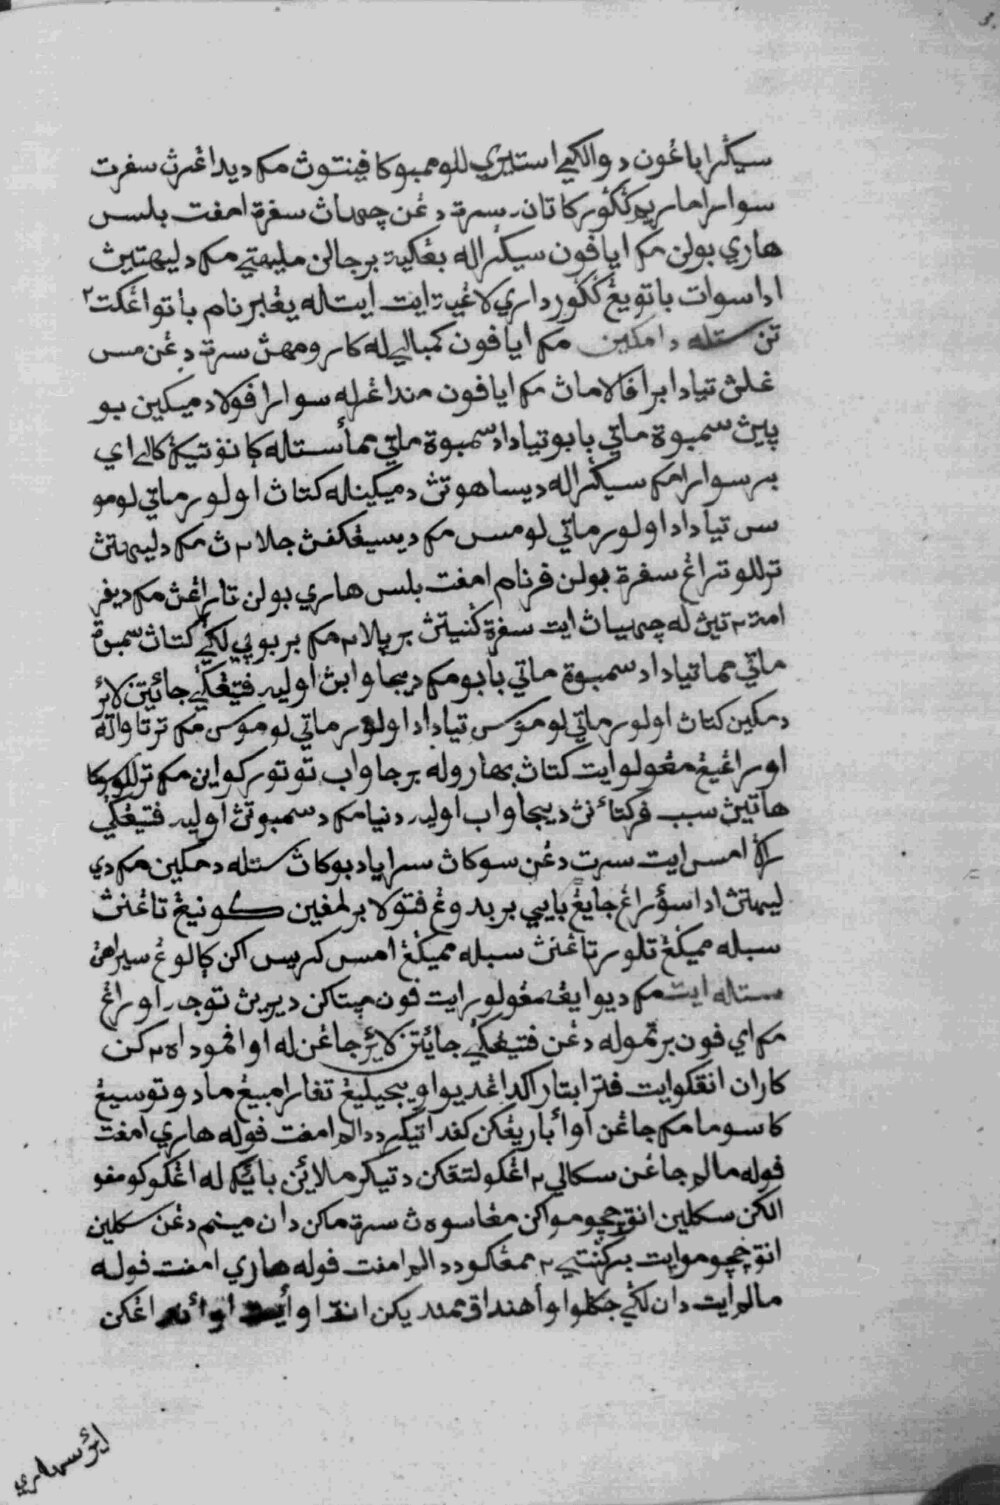 سيڬراباڠون دوالكي استيري للو ممبوكا ڤينتوڽ مك ديداڠرڽ سڤرت
سوارا هاريمو كوركاتان سرة دڠن چهياڽ سڤرة امڤت بلس
هاري بولن مك اياڤون سيڬراله بڠكية برجالن مليهتي مك دليهتيڽ
اداسوات باتو يڠ ككور داري لاڠية ايت ايتاله يڠبرنام باتو اڠكت٢
تن ستله دمكين مك اياڤون كمباليله كارومهڽ سرة دڠن مس
غلڽ تيادا براڤا لاماڽ مك اياڤون منداڠرله سوارا ڤولا دميكين بو
ڽيڽ سمبوة ماتي بابو تيادا دسمبوة ماتي مما ستله كانڤ تيڬ كالي اي
برسوارا مك سيڬراله ديساهوتڽ دميكينله كتاڽ اولور ماتي لومو
س تيادا داولور ماتي لومس مك ديسيڠكڤڽ جلاڽ مك دليهتڽ
ترللو تراڠ سڤرة بولن ڤرنام امڤت بلس هاري بولن تاراڠڽ مك ديڤر
امة٢تيڽ له چهياڽ ايت سڤرة كنيتڽ برڽالا٢ مك بربوڽي لڬي كتاڽ سمبوة
ماتي مما تيادا دسمبوة ماتي بابو مك ديجاوابڽ اوليه ڤتيڠڬي جائيتن لائر
دمكين كتاڽ اولور ماتي لوموس تيادا داولور ماتي لوموس مك ترتاواله
اورڠ يڠ مڠولو ايت كتاڽ بهاروله برجاواب توتوركو اين مك ترللو سوكا
هاتيڽ سبب ڤركتائنڽ ديجاواب اوليه دنيا مك دسمبوتڽ اوليه ڤتيڠڬي
راڬ امس ايت سرت دڠن سوكاڽ سراياد بوكاڽ ستله دمكين مك دي
ليهتڽ اداسؤراڠ جاڠ بايي بربدوڠ ڤتولا برلمڤين كونيڠ تاڠنڽ
سبله مميڬڠ تلور تاڠنڽ سبله مميڬڠ امس كريس اكن كالوڠ سيراهن
ستله ايت مك ديوا يڠ مڠولور ايت ڤون ميتاكن ديريڽ توجه اورڠ
مك اي ڤون برتموله دڠن ڤتيڠڬي جائيتن لائر جاڠنله اواڠمو داه٢كن
كاران انقكو ايت ڤترا بتارا كلا اڠديوا ويجيليڠ تڤارا مبيڠ مادو توسيڠ
كاسوما مك جاڠن اوا باريڠكن كڤد اتيكر ددالم امڤت ڤوله هاري امڤت
ڤوله مالم جاڠن سكالي٢ اڠكو لتقكن دتيكر ملاينكن بايڬله اڠكو كومڤو
الكن سكلين انق چوچومو اكن مڠاسوه ڽ سرة ماكن دان مينم دڠن سكلين
انق چوچومو ايت برڬنتي٢ ممڠكو ددالم امڤت ڤوله هاري امڤت ڤوله
مالم ايت دان لڬي جكلو اوا هنداق ممنديكن انق اوا ايت اوا اڠكن